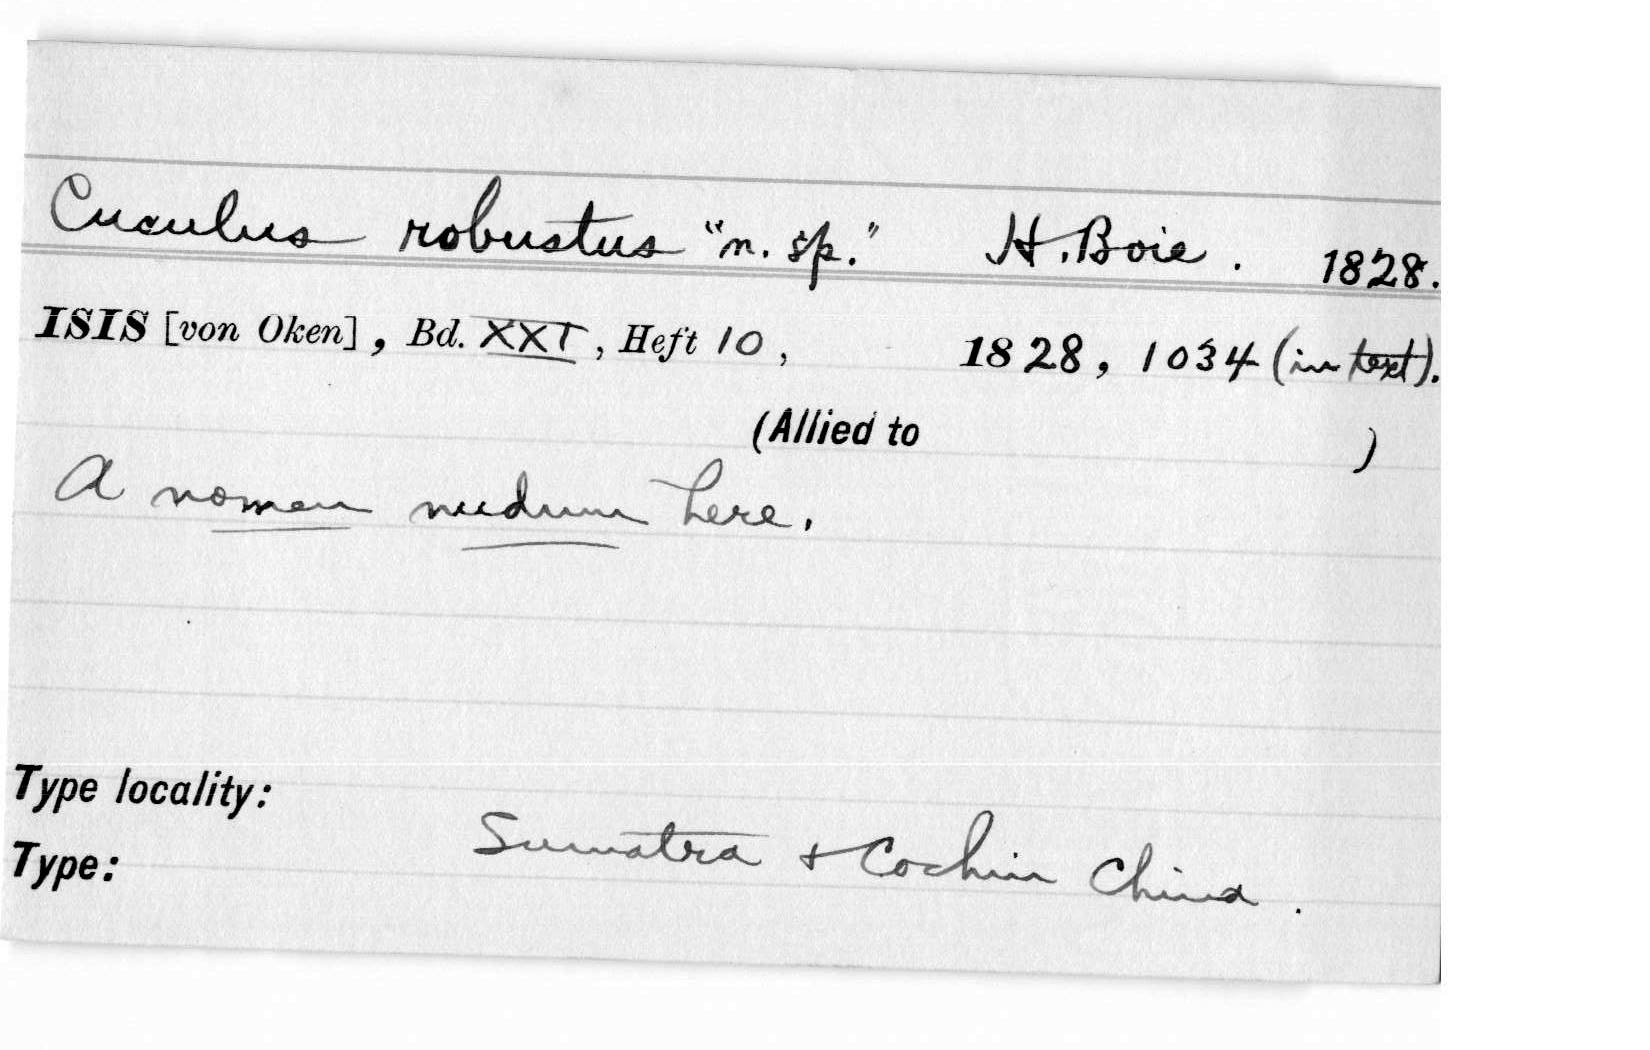 Cuculus robustus "n. sp." H. Boie. 1828.
ISIS [von Oken], Bd. XXI, Heft 10, 1828, 1034 (in text).
(Allied to )
A nomen nudum here.
Type locality:
Sumatra + Cochin China.
Type: